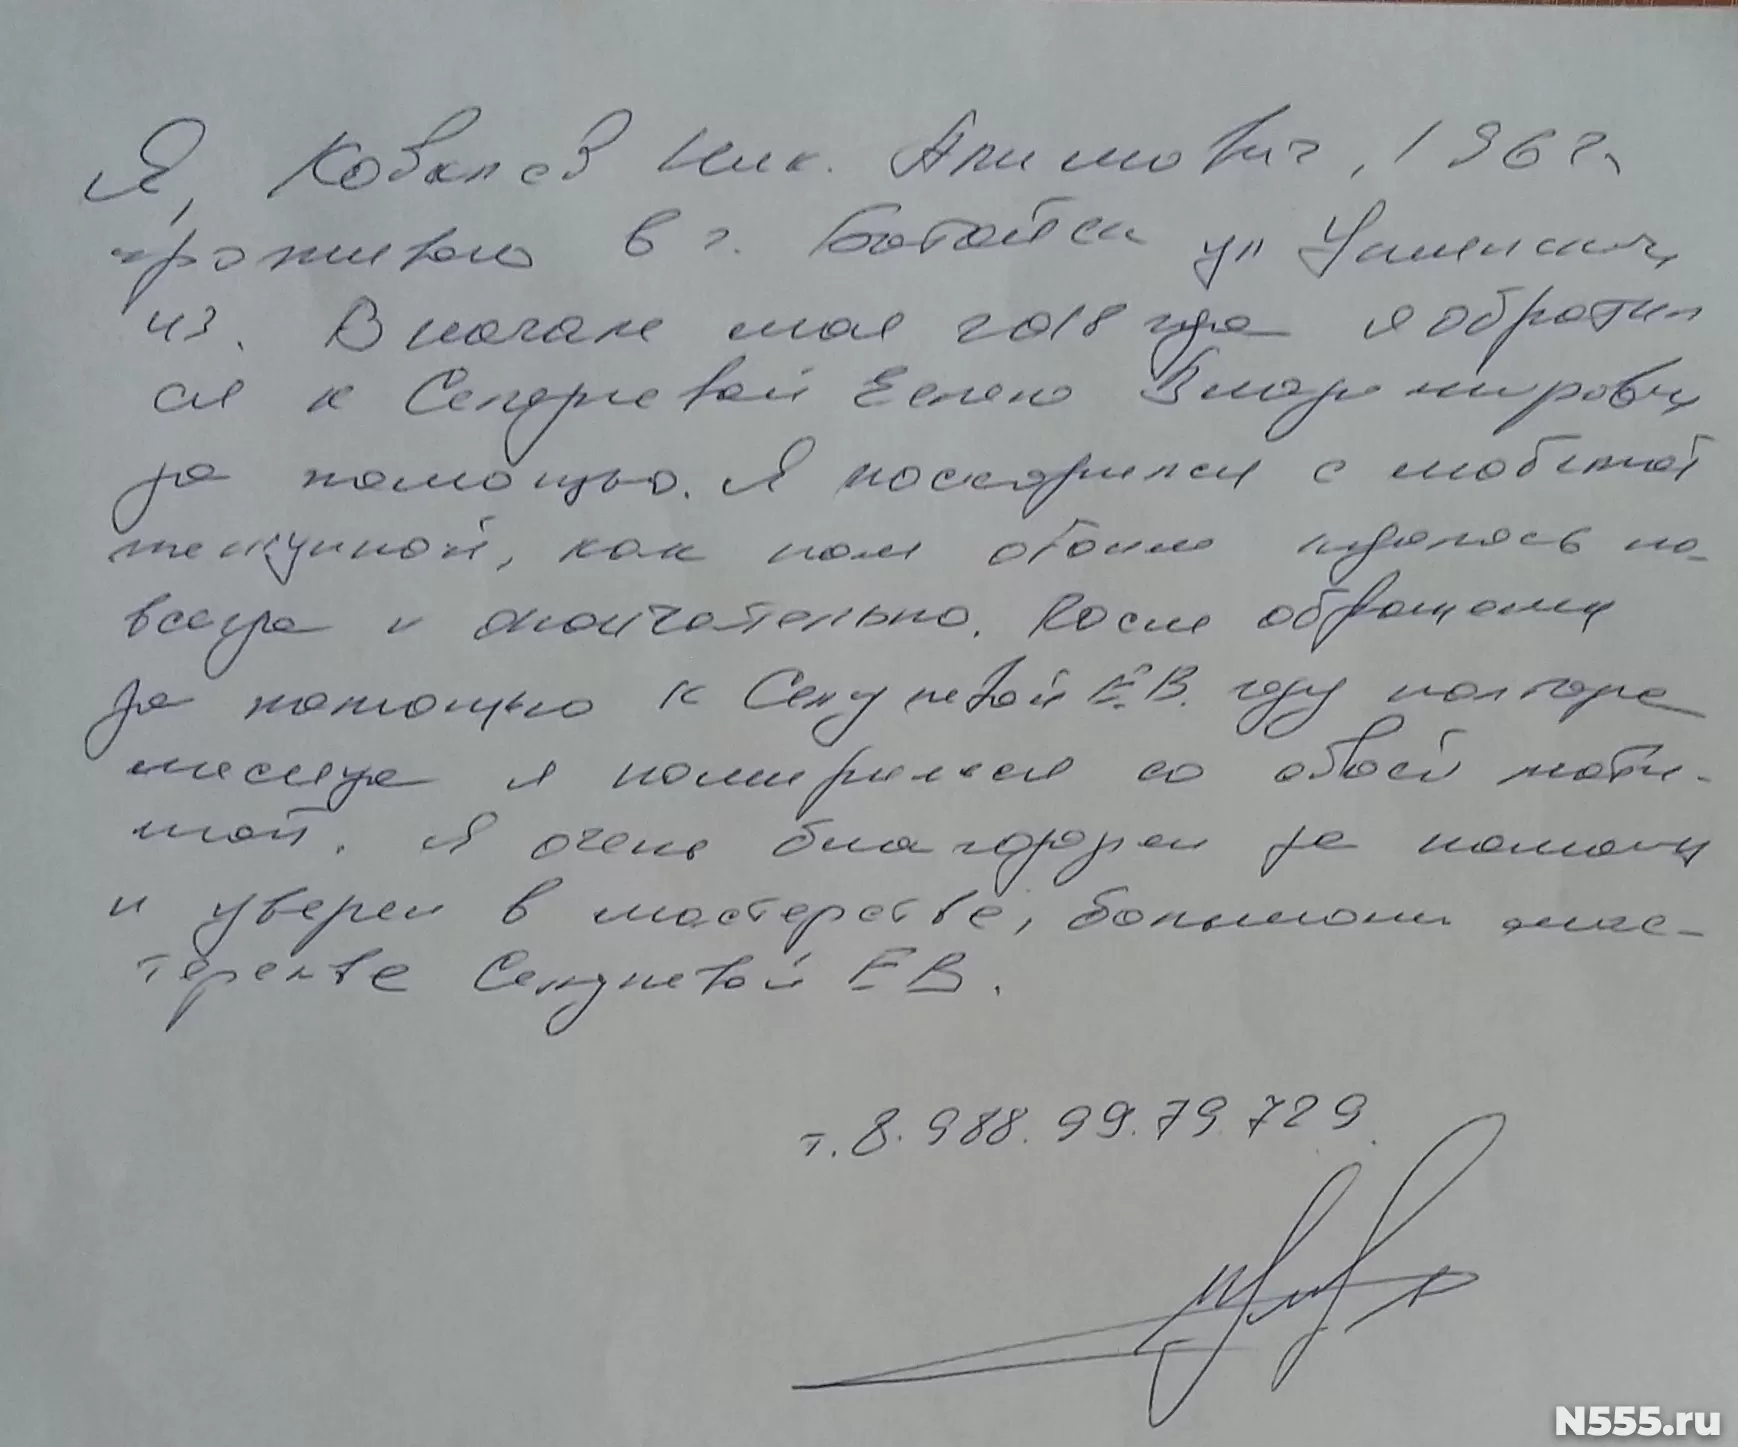 Я, Ковалев Ник. Акимович, 1962 г.
проживаю в г. Батайск ул
43. В начале мая 2018 года я обратил
ся к Еленe Владимировн
за помощью. Я поссорился с любимой
женщиной, как нам обоим казалось на-
всегда и окончательно. После обращения
за помощью к Е.В. году полтора
месяца я помирился со своей люби-
мой. Я очень благодарен за помощь
и уверен в мастерстве, большом мас-
терстве ЕВ.
т. 8. 988. 99. 79. 729.
N555.ru